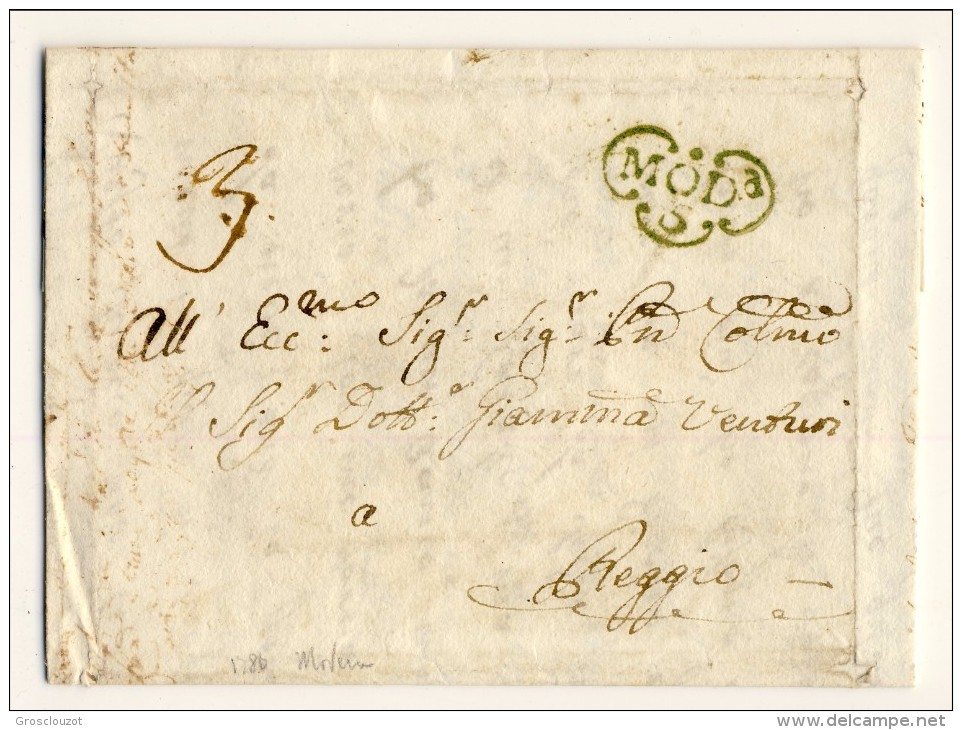 3
MODª
5
All' Ecc:mo Sig:r Sig:r Pn Colmo
Il Sigr Dott:e Giammã Venturi
a
Reggio
1786 Modena
Grosclouzot
www.delcampe.net